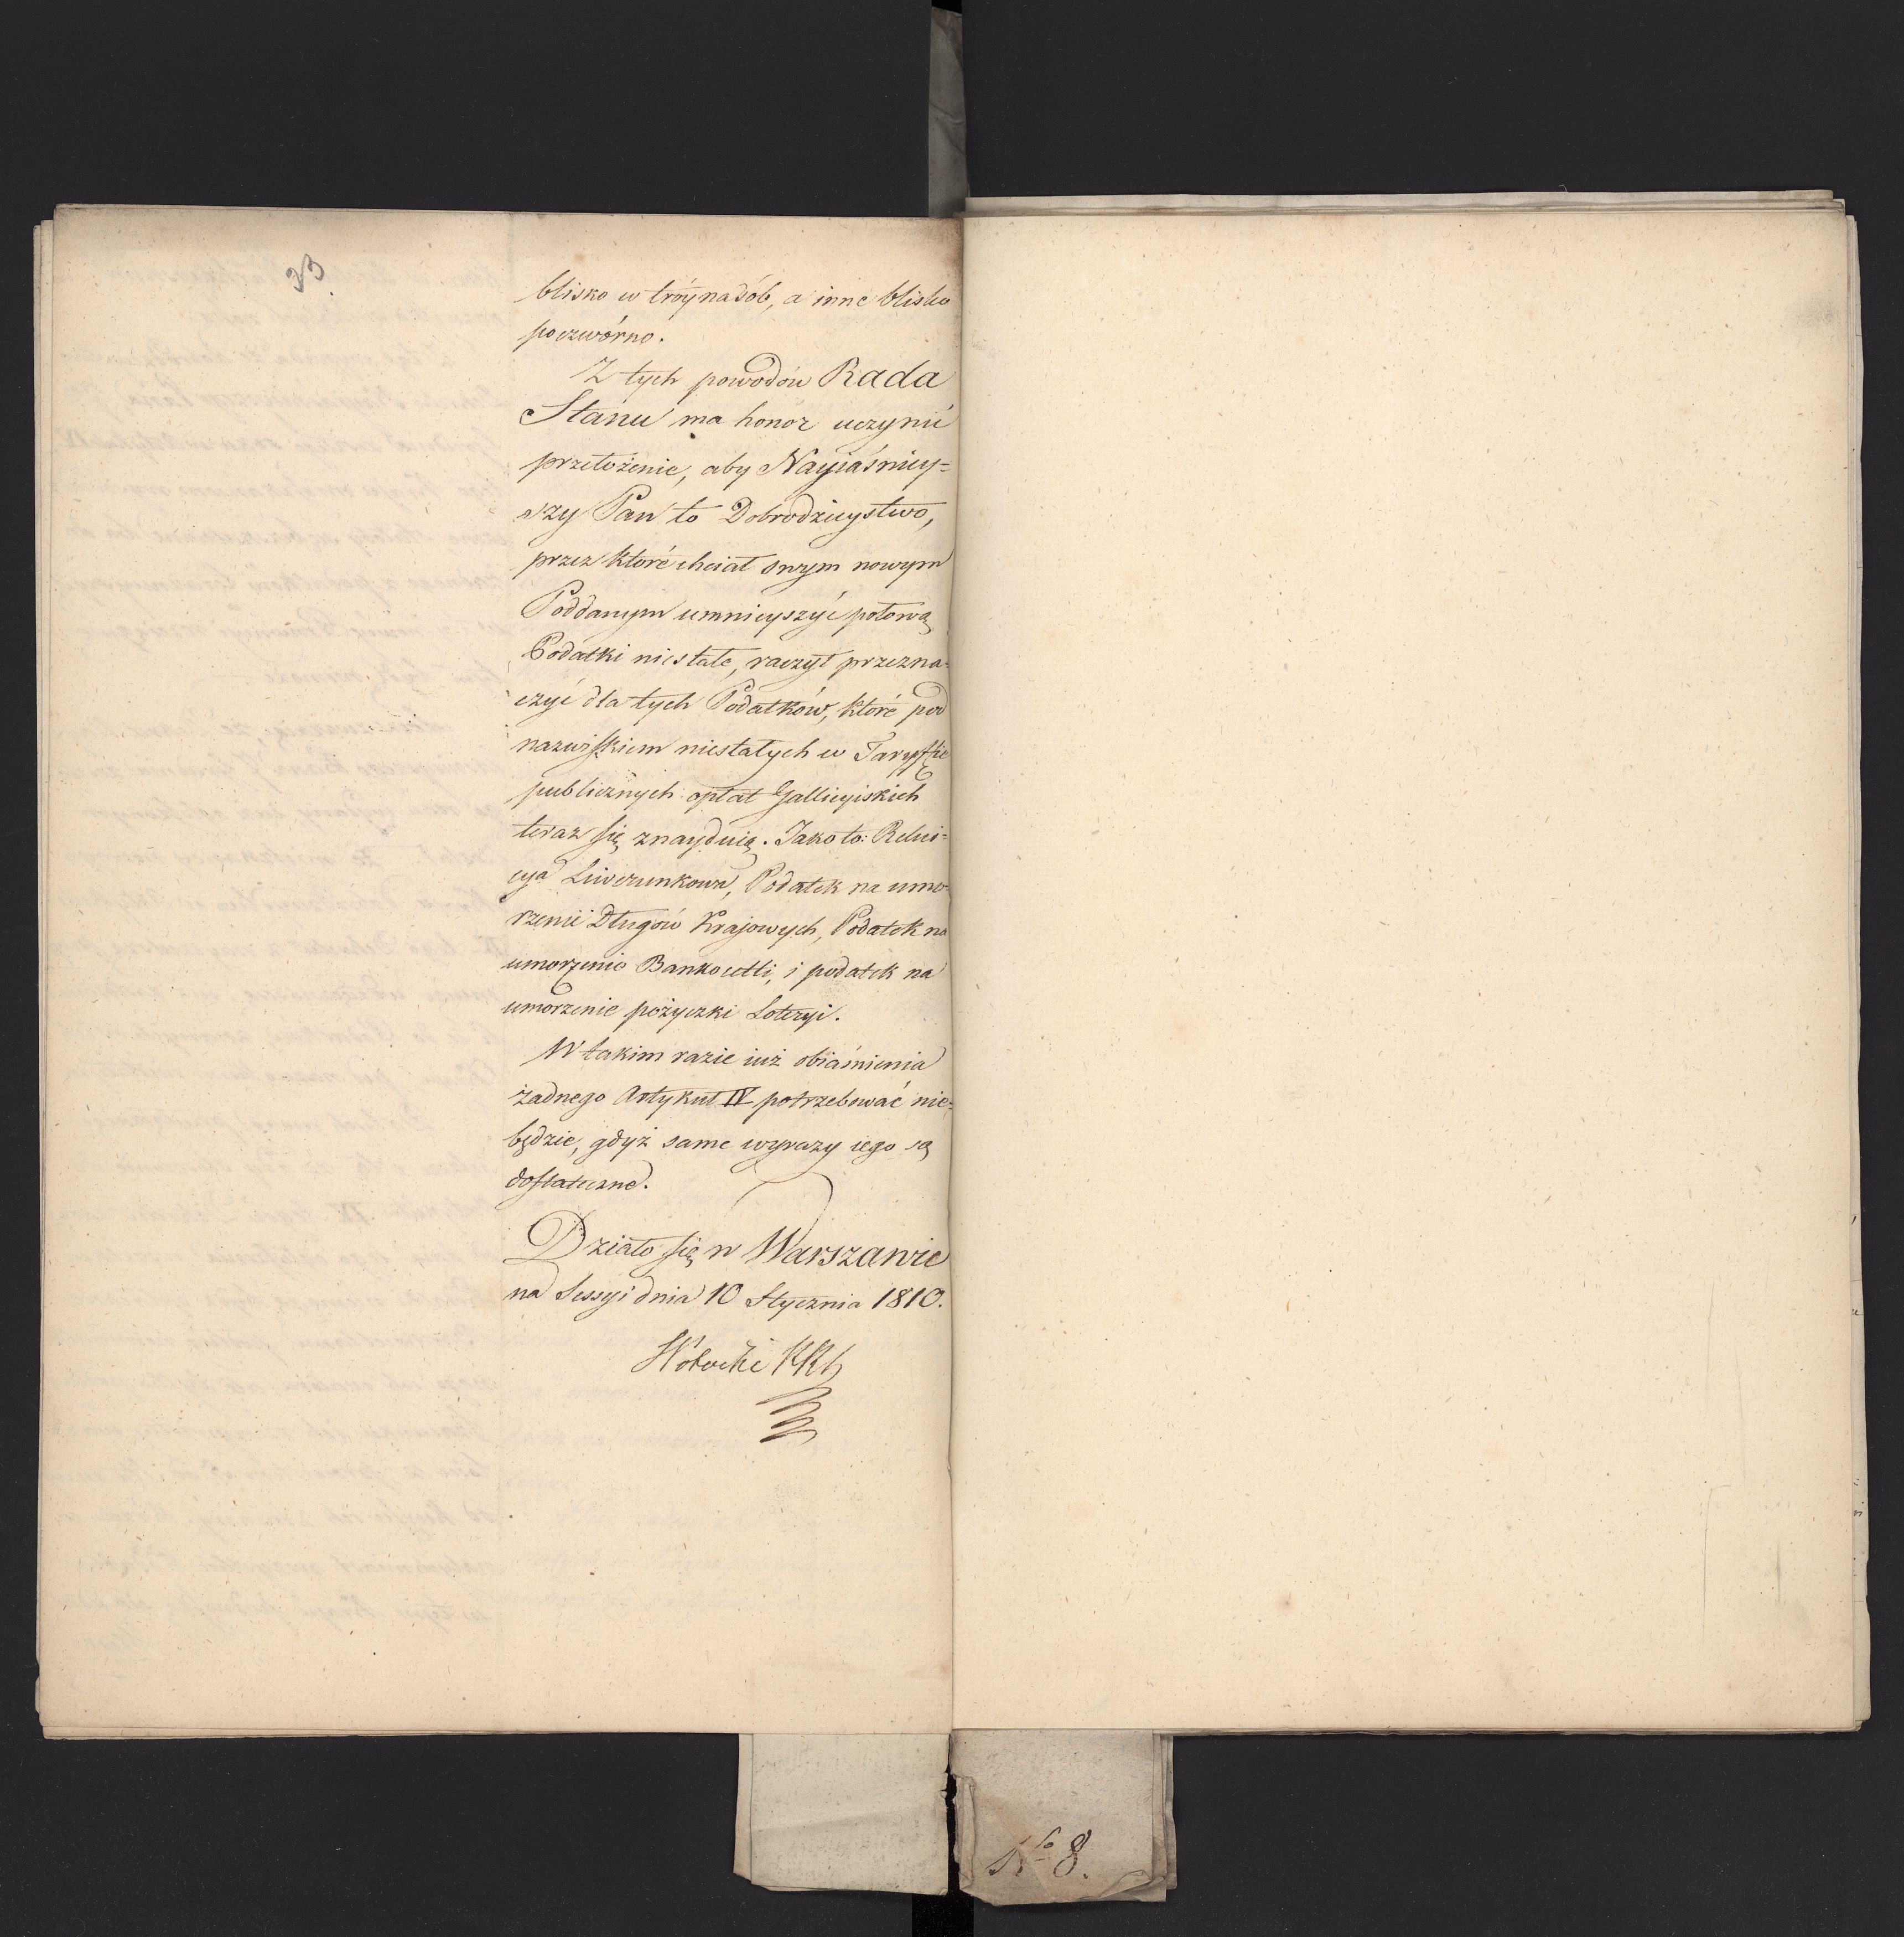 33
blisko w tróynasób, a inne blisko
poczwórno.
Z tych powodów Rada
Stanu ma honor uczynić
przełożenie, aby Nayiaśniey=
szy Pan to Dobrodzieystwo,
przez które chciał swym nowym
Poddanym umnieyszyć połową
Podatki niestałe, raczył przezna=
czyć dla tych Podatków, które pod
nazwiskiem niestałych w Taryffie
publicznych opłat Gallicyiskich
teraz się znayduią. Jako to: Relui=
cya Liwerunkowa, Podatek na umo=
rzenie Długów Krajowych, Podatek na
umorzenie Bankocetli, i podatek na
umorzenie pożyczki Loteryi.
W takim razie iuż obiaśnienia
żadnego Artykuł IV potrzebować nie=
będzie, gdyż same wyrazy iego są
dostateczne.
Działo się w Warszawie
na Sessyi dnia 10 Stycznia 1810.
No 8.